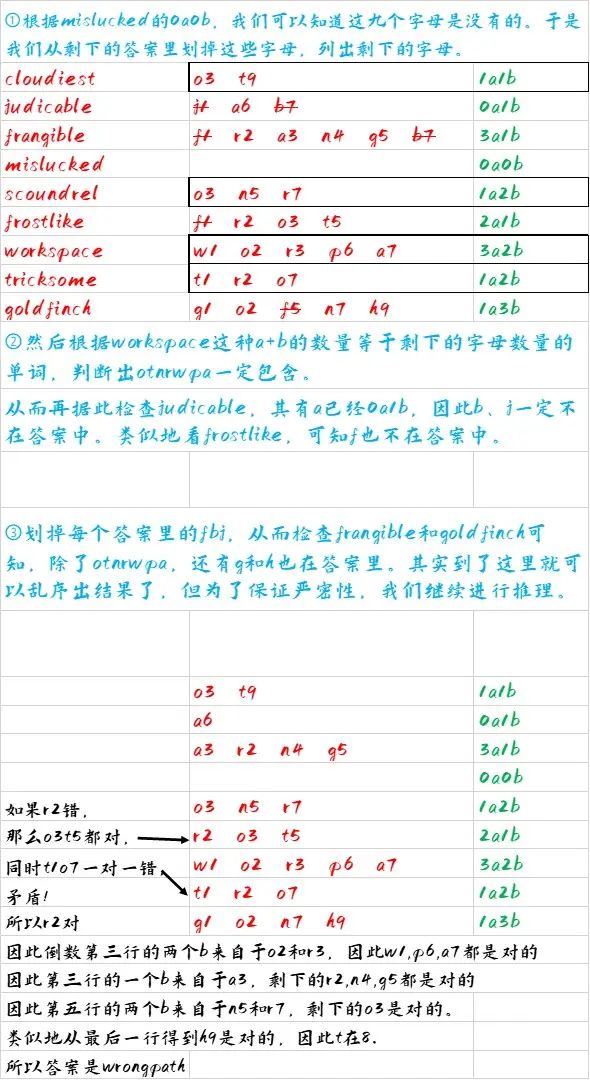 ①根据mislucked的0a0b，我们可以知道这九个字母是没有的。于是
我们从剩下的答案里划掉这些字母，列出剩下的字母。
cloudiest o3 t9 1a1b
judicable j1 a6 b7 0a1b
frangible f1 r2 a3 n4 g5 b7 3a1b
mislucked 0a0b
scoundrel o3 n5 r7 1a2b
frostlike f1 r2 o3 t5 2a1b
workspace w1 o2 r3 p6 a7 3a2b
tricksome t1 r2 o7 1a2b
goldfinch g1 o2 f5 n7 h9 1a3b
②然后根据workspace这种a+b的数量等于剩下的字母数量的
单词，判断出otnrwpa一定包含。
从而再据此检查judicable，其有a已经0a1b，因此b、j一定不
在答案中。类似地看frostlike，可知f也不在答案中。
③划掉每个答案里的fbj，从而检查frangible和goldfinch可
知，除了otnrwpa，还有g和h也在答案里。其实到了这里就可
以乱序出结果了，但为了保证严密性，我们继续进行推理。
o3 t9 1a1b
a6 0a1b
a3 r2 n4 g5 3a1b
0a0b
如果r2错， o3 n5 r7 1a2b
那么o3t5都对， r2 o3 t5 2a1b
同时t1o7一对一错， w1 o2 r3 p6 a7 3a2b
矛盾！ t1 r2 o7 1a2b
所以r2对 g1 o2 n7 h9 1a3b
因此倒数第三行的两个b来自于o2和r3，因此w1,p6,a7都是对的
因此第三行的一个b来自于a3，剩下的r2,n4,g5都是对的
因此第五行的两个b来自于n5和r7，剩下的o3是对的。
类似地从最后一行得到h9是对的，因此t在8.
所以答案是wrongpath